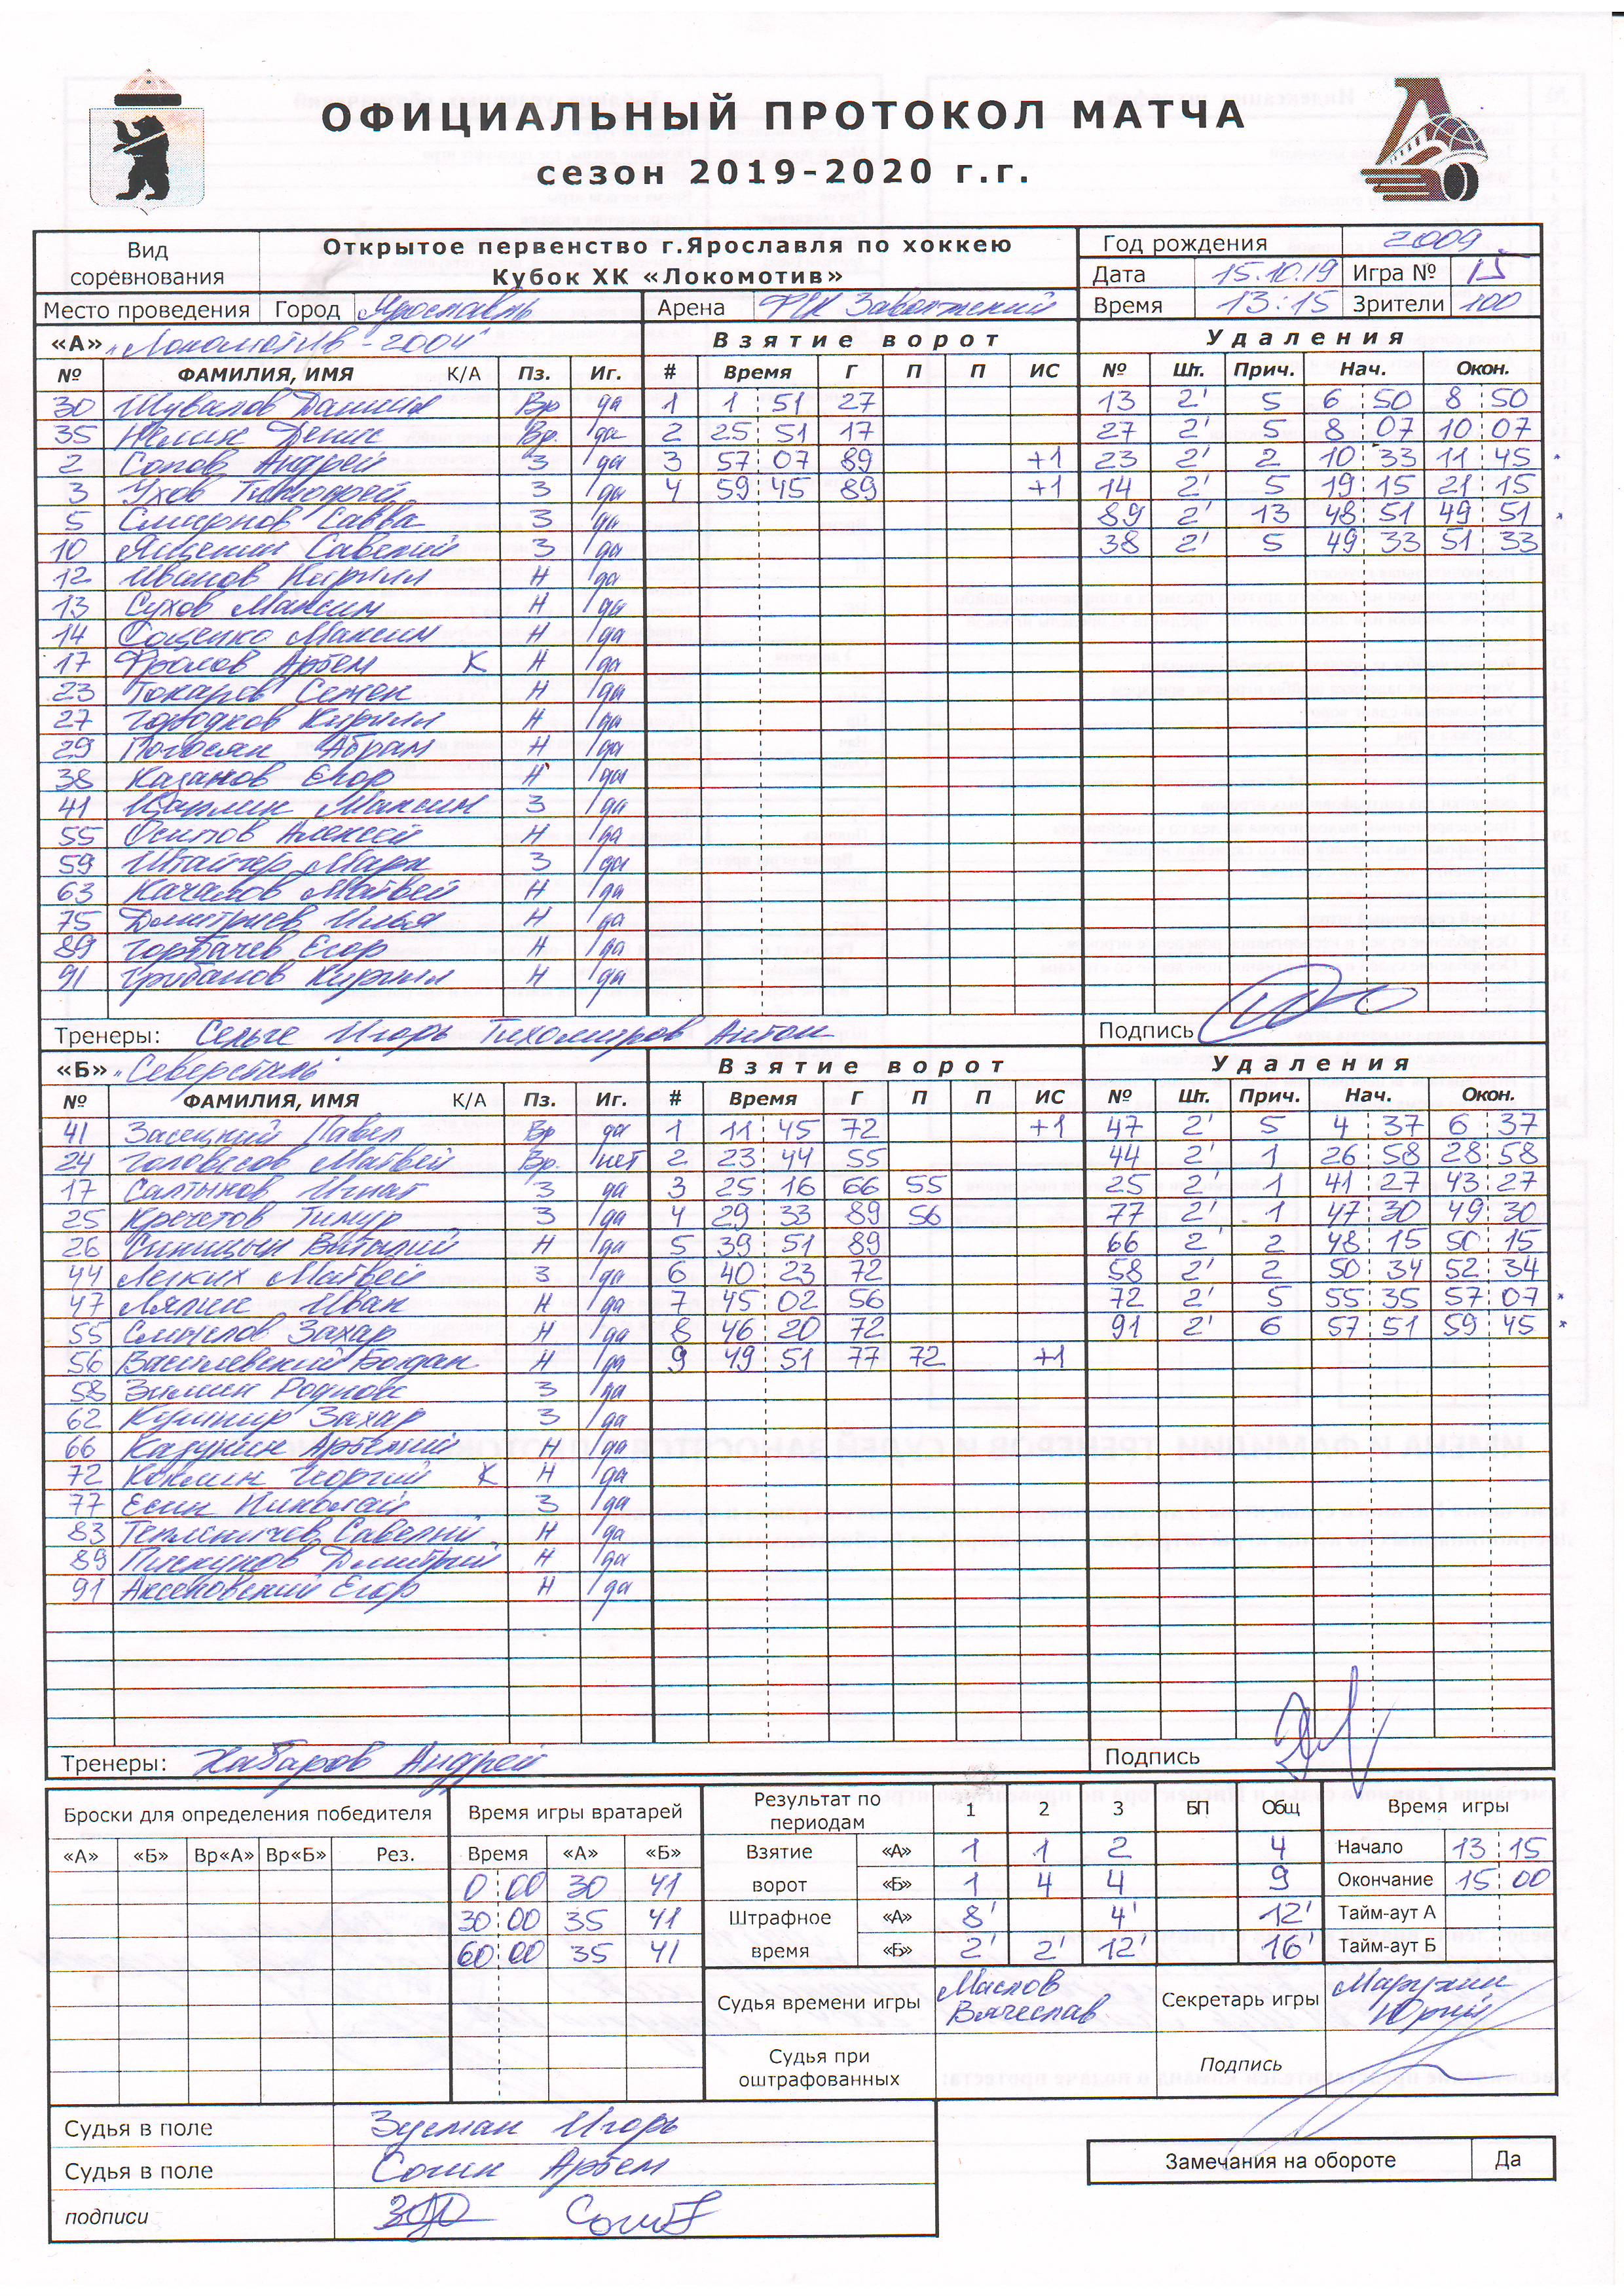 ОФИЦИАЛЬНЫЙ ПРОТОКОЛ МАТЧА
сезон 2019-2020 г.г.
Вид соревнования Открытое первенство г.Ярославля по хоккею Год рождения 2009
Кубок ХК «Локомотив» Дата 15.10.19 Игра № 15
Место проведения Город Ярославль Арена ФСК Заволжский Время 13:15 Зрители 100
«А» "Локомотив-2004" Взятие ворот Удаления
№ ФАМИЛИЯ, ИМЯ К/А Пз. Иг. # Время Г П П ИС № Шт. Прич. Нач. Окон.
30 Шувалов Даниил Вр да 1 1 51 27 13 2' 5 6 50 8 50
35 Нелин Денис Вр. да 2 25 51 17 27 2' 5 8 07 10 07
2 Сопов Андрей З да 3 57 07 89 +1 23 2' 2 10 33 11 45 *
3 Ухов Тимофей З да 4 59 45 89 +1 14 2' 5 19 15 21 15
5 Смирнов Савва З да 89 2' 13 48 51 49 51 *
10 Савелий З да 38 2' 5 49 33 51 33
12 Иванов Кирилл Н да
13 Сухов Максим Н да
14 Сощенко Максим Н да
17 Фролов Артем К Н да
23 Токарев Семен Н да
27 Городков Кирилл Н да
29 Погосян Абрам Н да
38 Казанов Егор Н да
41 Максим З да
55 Осипов Алексей Н да
59 Марк З да
63 Качалов Матвей Н да
75 Дмитриев Илья Н да
89 Горбачев Егор Н да
91 Грибанов Кирилл Н да
Тренеры: Сельге Игорь Тихомиров Антон Подпись
«Б» "Северсталь" Взятие ворот Удаления
№ ФАМИЛИЯ, ИМЯ К/А Пз. Иг. # Время Г П П ИС № Шт. Прич. Нач. Окон.
41 Засецкий Павел Вр да 1 11 45 72 +1 47 2' 5 4 37 6 37
24 Головесов Матвей Вр. нет 2 23 44 55 44 2' 1 26 58 28 58
17 Салтыков Игнат З да 3 25 16 66 55 25 2' 1 41 27 43 27
25 Кречетов Тимур З да 4 29 33 89 56 77 2' 1 47 30 49 30
26 Синицын Виталий Н да 5 39 51 89 66 2' 2 48 15 50 15
44 Легких Матвей З да 6 40 23 72 58 2' 2 50 34 52 34
47 Лялин Иван Н да 7 45 02 56 72 2' 5 55 35 57 07 *
55 Смыслов Захар Н да 8 46 20 72 91 2' 6 57 51 59 45 *
56 Василевский Богдан Н да 9 49 51 77 72 +1
58 Зимин Родион З да
62 Захар З да
66 Казунин Артемий Н да
72 Коклин Георгий К Н да
77 Есин Николай З да
83 Савелий Н да
89 Пискунов Дмитрий Н да
91 Аксеновский Егор Н да
Тренеры: Хабаров Андрей Подпись
Броски для определения победителя Время игры вратарей Результат по периодам 1 2 3 БП Общ Время игры
«А» «Б» Вр«А» Вр«Б» Рез. Время «А» «Б» Взятие «А» 1 1 2 4 Начало 13 15
0 00 30 41 ворот «Б» 1 4 4 9 Окончание 15 00
30 00 35 41 Штрафное «А» 8' 4' 12' Тайм-аут А
60 00 35 41 время «Б» 2' 2' 12' 16' Тайм-аут Б
Судья времени игры Маслов Вячеслав Секретарь игры Юрий
Судья при оштрафованных Подпись
Судья в поле Зусман Игорь
Судья в поле Согин Артем
Замечания на обороте Да
подписи